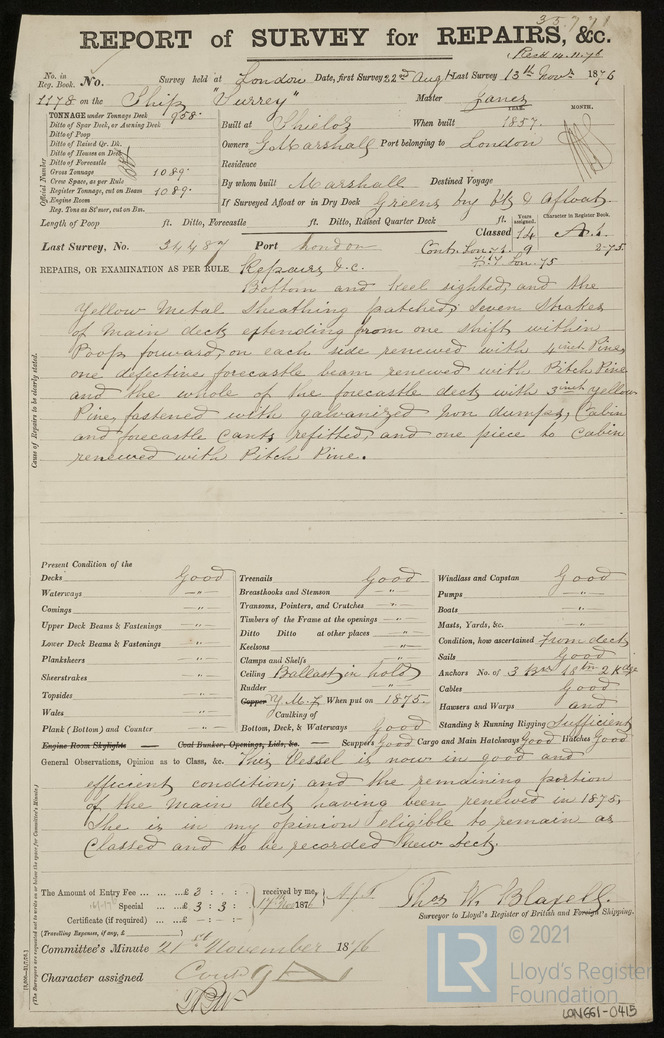 35771
REPORT of SURVEY for REPAIRS, &c.
Recd 14.11.76
No. in Reg. Book. No. Survey held at London Date, first Survey 22nd Augt Last Survey 13th Novr 1876
1178 on the Ship "Surrey" Master Janes
TONNAGE under Tonnage Deck 958
Ditto of Spar Deck, or Awning Deck
Ditto of Poop
Ditto of Raised Qr. Dk.
Ditto of Houses on Deck
Ditto of Forecastle
Gross Tonnage 1089
Crew Space, as per Rule
Register Tonnage, cut on Beam 1089
Engine Room
Reg. Tons as St'mer, cut on Bm.
Official Number
YEAR. MONTH.
Built at Shields When built 1857
Owners G Marshall Port belonging to London
Residence
By whom built Marshall Destined Voyage
If Surveyed Afloat or in Dry Dock Greens & Afloat
Length of Poop ft. Ditto, Forecastle ft. Ditto, Raised Quarter Deck ft.
Years assigned. Character in Register Book.
Classed 14 A.1.
Last Survey, No. 24487 Port London Cont. Lon. 71. 9 2-75
Lon. 75
REPAIRS, OR EXAMINATION AS PER RULE Repairs &c.
Bottom and keel sighted, and the
Yellow Metal Sheathing patched, Seven Strakes
of Main deck extending from one shift within
Poop forward, on each side renewed with 4 inch Pine,
one defective forecastle beam renewed with Pitch Pine
and the whole of the forecastle deck with 3 inch yellow
Pine, fastened with galvanized Iron dumps, Cabin
and forecastle Cants refitted, and one piece to Cabin
renewed with Pitch Pine.
Cause of Repairs to be clearly stated.
Present Condition of the
Decks Good
Waterways — " —
Comings — " —
Upper Deck Beams & Fastenings — " —
Lower Deck Beams & Fastenings — " —
Planksheers — " —
Sheerstrakes — " —
Topsides — " —
Wales — " —
Plank (Bottom) and Counter — " —
Treenails Good
Breasthooks and Stemson — " —
Transoms, Pointers, and Crutches — " —
Timbers of the Frame at the openings — " —
Ditto Ditto at other places — " —
Keelsons — " —
Clamps and Shelfs — " —
Ceiling Ballast in hold
Rudder — " —
Copper Y.M.f When put on 1875
Caulking of
Bottom, Deck, & Waterways Good
Windlass and Capstan Good
Pumps — " —
Boats — " —
Masts, Yards, &c. — " —
Condition, how ascertained From deck
Sails Good
Anchors No. of 3 Brs 1 Stm 2 Kdge
Cables Good
Hawsers and Warps and
Standing & Running Rigging Sufficient
Engine Room Skylights — Coal Bunker, Openings, Lids, &c. — Scuppers Good Cargo and Main Hatchways Good Hatches Good
General Observations, Opinion as to Class, &c. This Vessel is now in good and
efficient condition; and the remaining portion
of the Main deck having been renewed in 1875,
She is in my opinion eligible to remain as
Classed and to be recorded New deck.
The Amount of Entry Fee ... ... ..£ 3 : . : received by me,
Special ... ..£ 3 : 3 : 17th Nov 1876
Certificate (if required) ... ..£ — : — :
(Travelling Expenses, if any, £ )
Thos W. Blaxell
Surveyor to Lloyd's Register of British and Foreign Shipping.
Committee's Minute 21st November 1876
Character assigned Cont 9 A
(The Surveyors are requested not to write on or below the space for Committee's Minute.)
LR
© 2021
Lloyd's Register
Foundation
LON661-0415